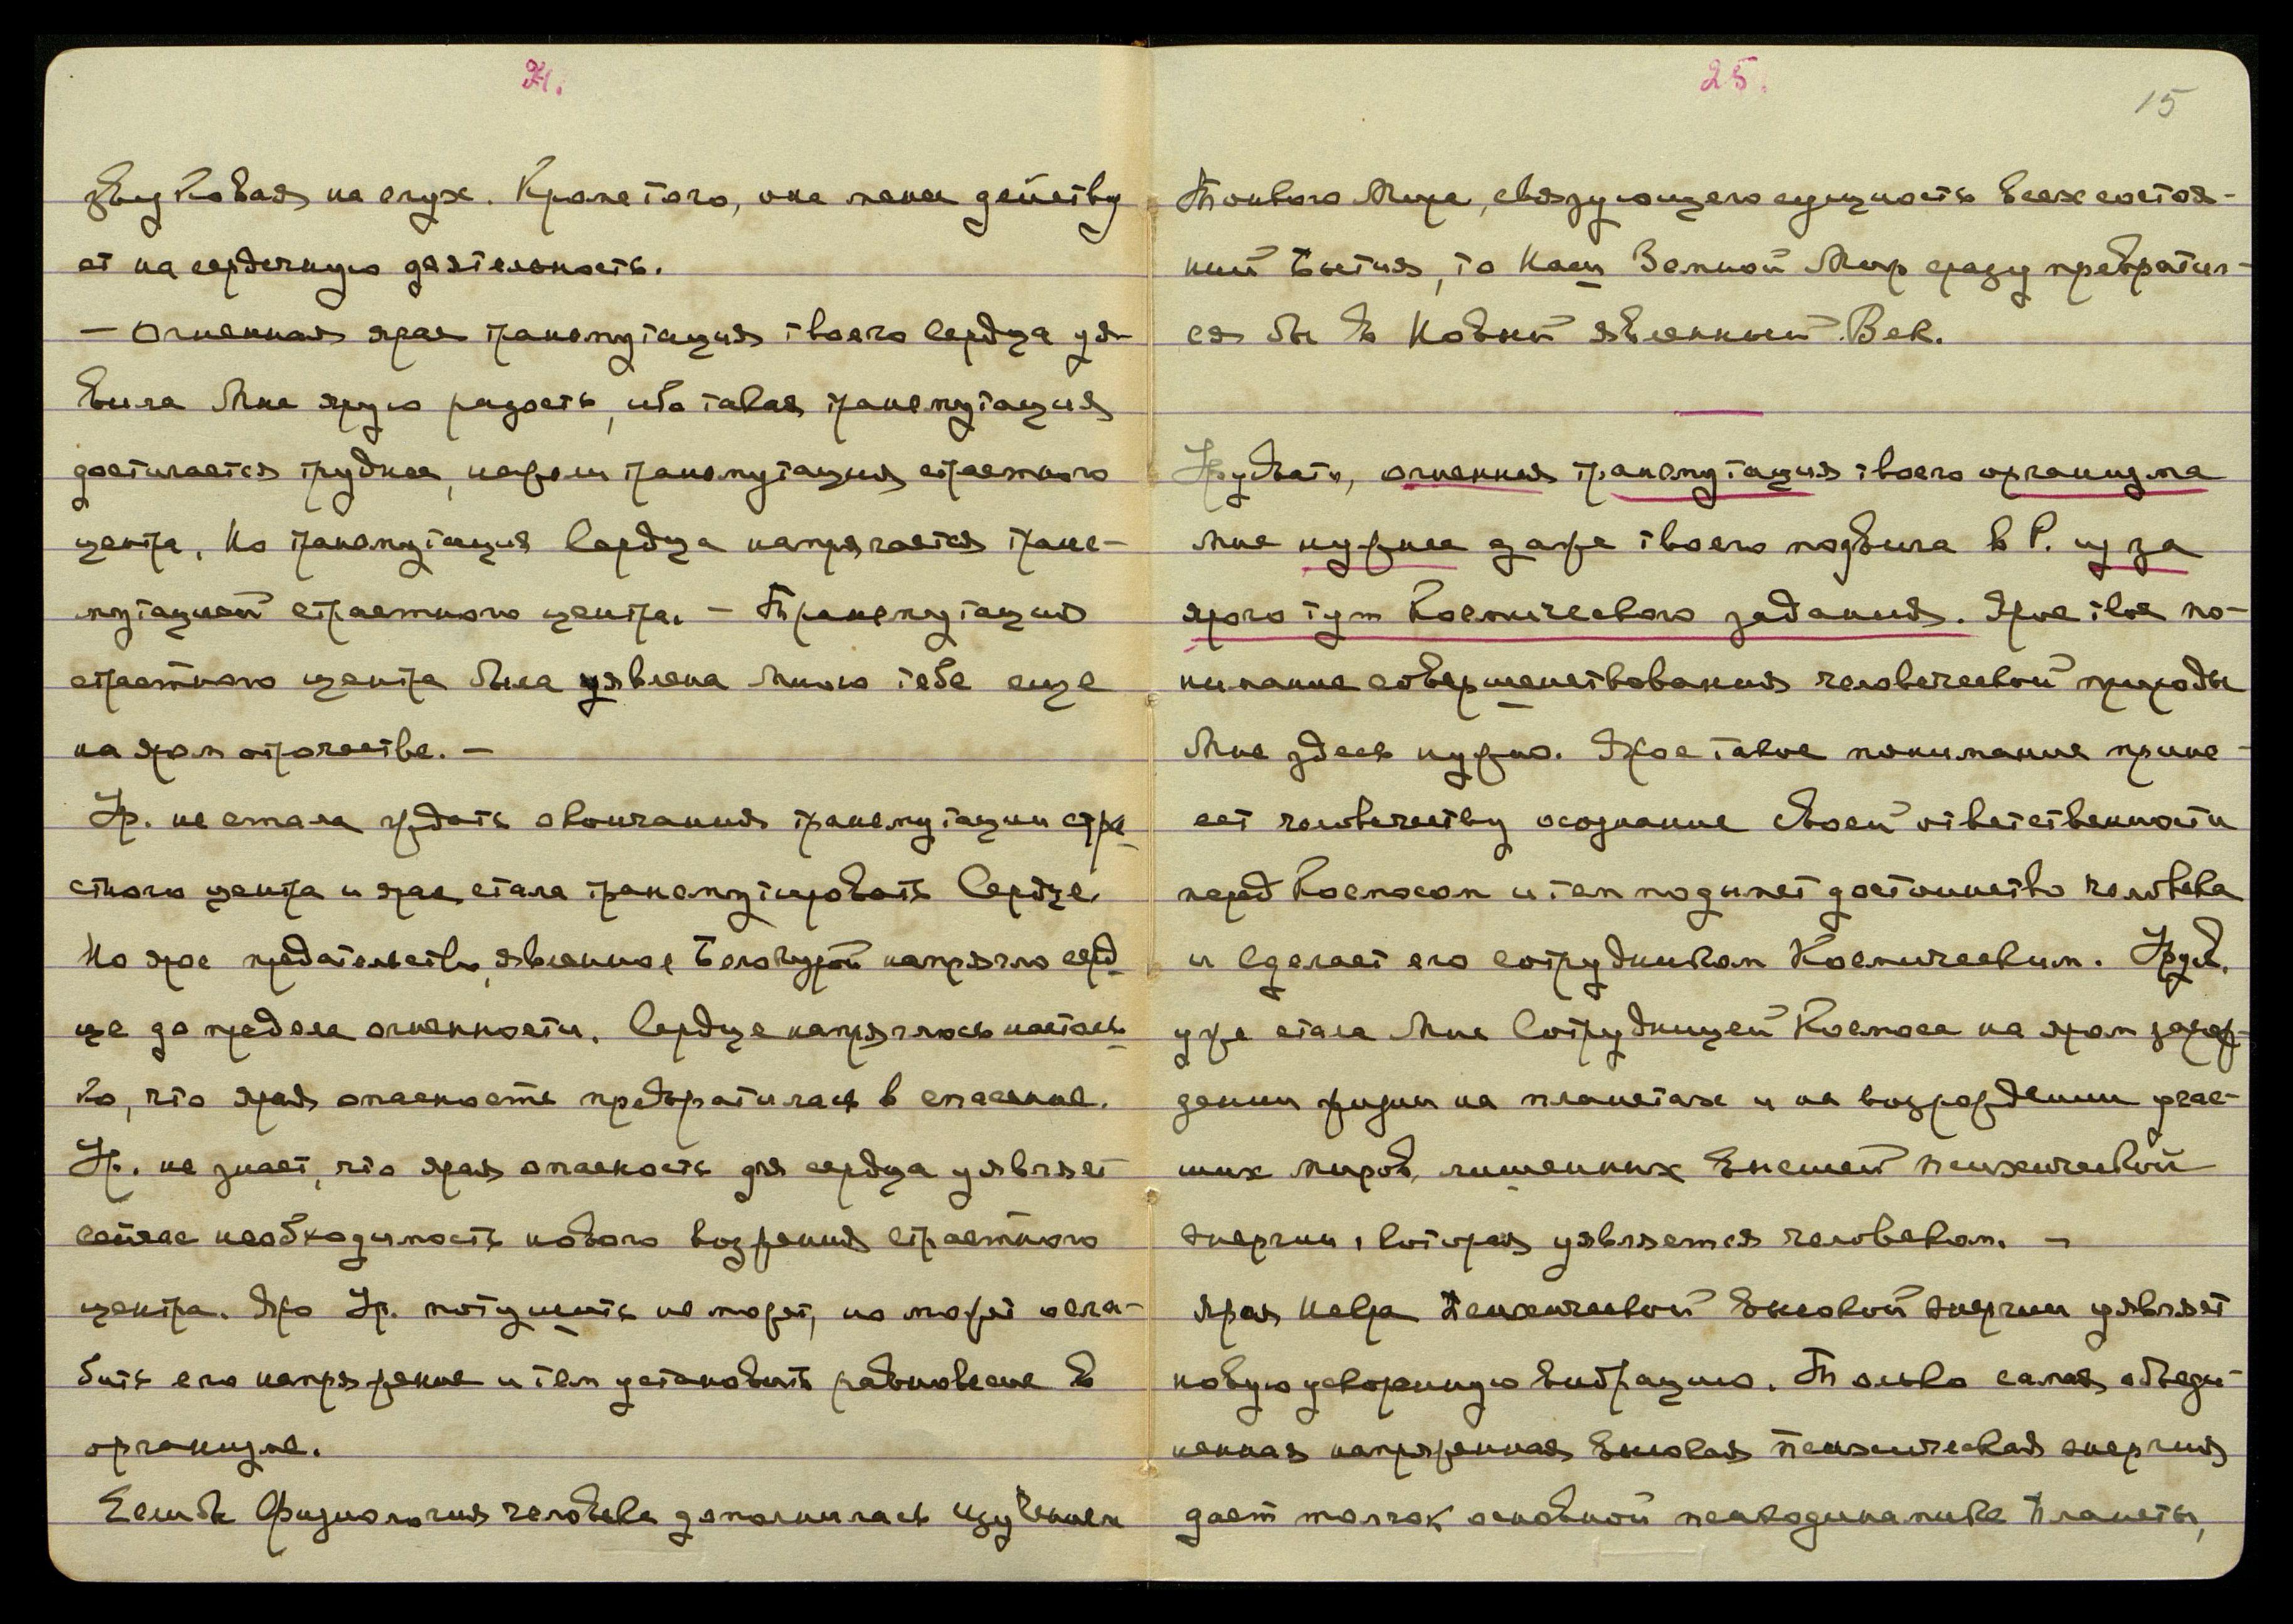 24.
звуковая на слух. Кроме того, она менее действу
ет на сердечную деятельность.
— Огненная ярая трансмутация твоего сердца уя-
вила Мне ярую радость, ибо такая трансмутация
достигается труднее, нежели трансмутация страстного
центра. Но трансмутация Сердца напрягается транс-
мутацией страстного центра. — Трансмутация
страстного центра была уявлена Мною тебе еще
на яром отрочестве. —
Ур. не стала ждать окончания трансмутации стра
стного центра и ярая стала трансмутировать Сердце.
Но ярое предательство, явленное Белокурой напрягло серд
це до предела огненности. Сердце напряглось настоль
ко, что ярая опасность превратилась в спасение.
Ур. не знает, что ярая опасность для сердца уявляет
сейчас необходимость нового воззрения страстного
центра. Яро Ур. потушить не может, но может осла-
бить его напряжение и тем установить равновесие в
организме.
Если бы Физиология человека дополнилась изучением
25.
15
Тонкого Мира, связующего сущность всех состоя-
ний Бытия, то Наш Земной Мир сразу превратил-
ся бы в Новый явленный Век.
Урувати, огненная трансмутация твоего организма
мне нужнее даже твоего подвига в Р. из за
ярого тут Космического задания. Ярое твое по-
нимание совершенствования человеческой природы
Мне здесь нужно. Ярое такое понимание прине-
сет человечеству осознание своей ответственности
перед Космосом и тем подымет достоинство человека
и сделает его сотрудником Космическим. Урув.
уже стала Мне Сотрудницей Космоса на яром зарож-
дении жизни на планетах и на возрождении угас-
ших миров, лишенных высшей психической
энергии, которая уявляется человеком. —
Ярая искра Психической высокой энергии уявляет
новую ускоренную вибрацию. Только самая объеди-
ненная напряженная высокая психическая энергия
дает толчок основной психодинамике Планеты,